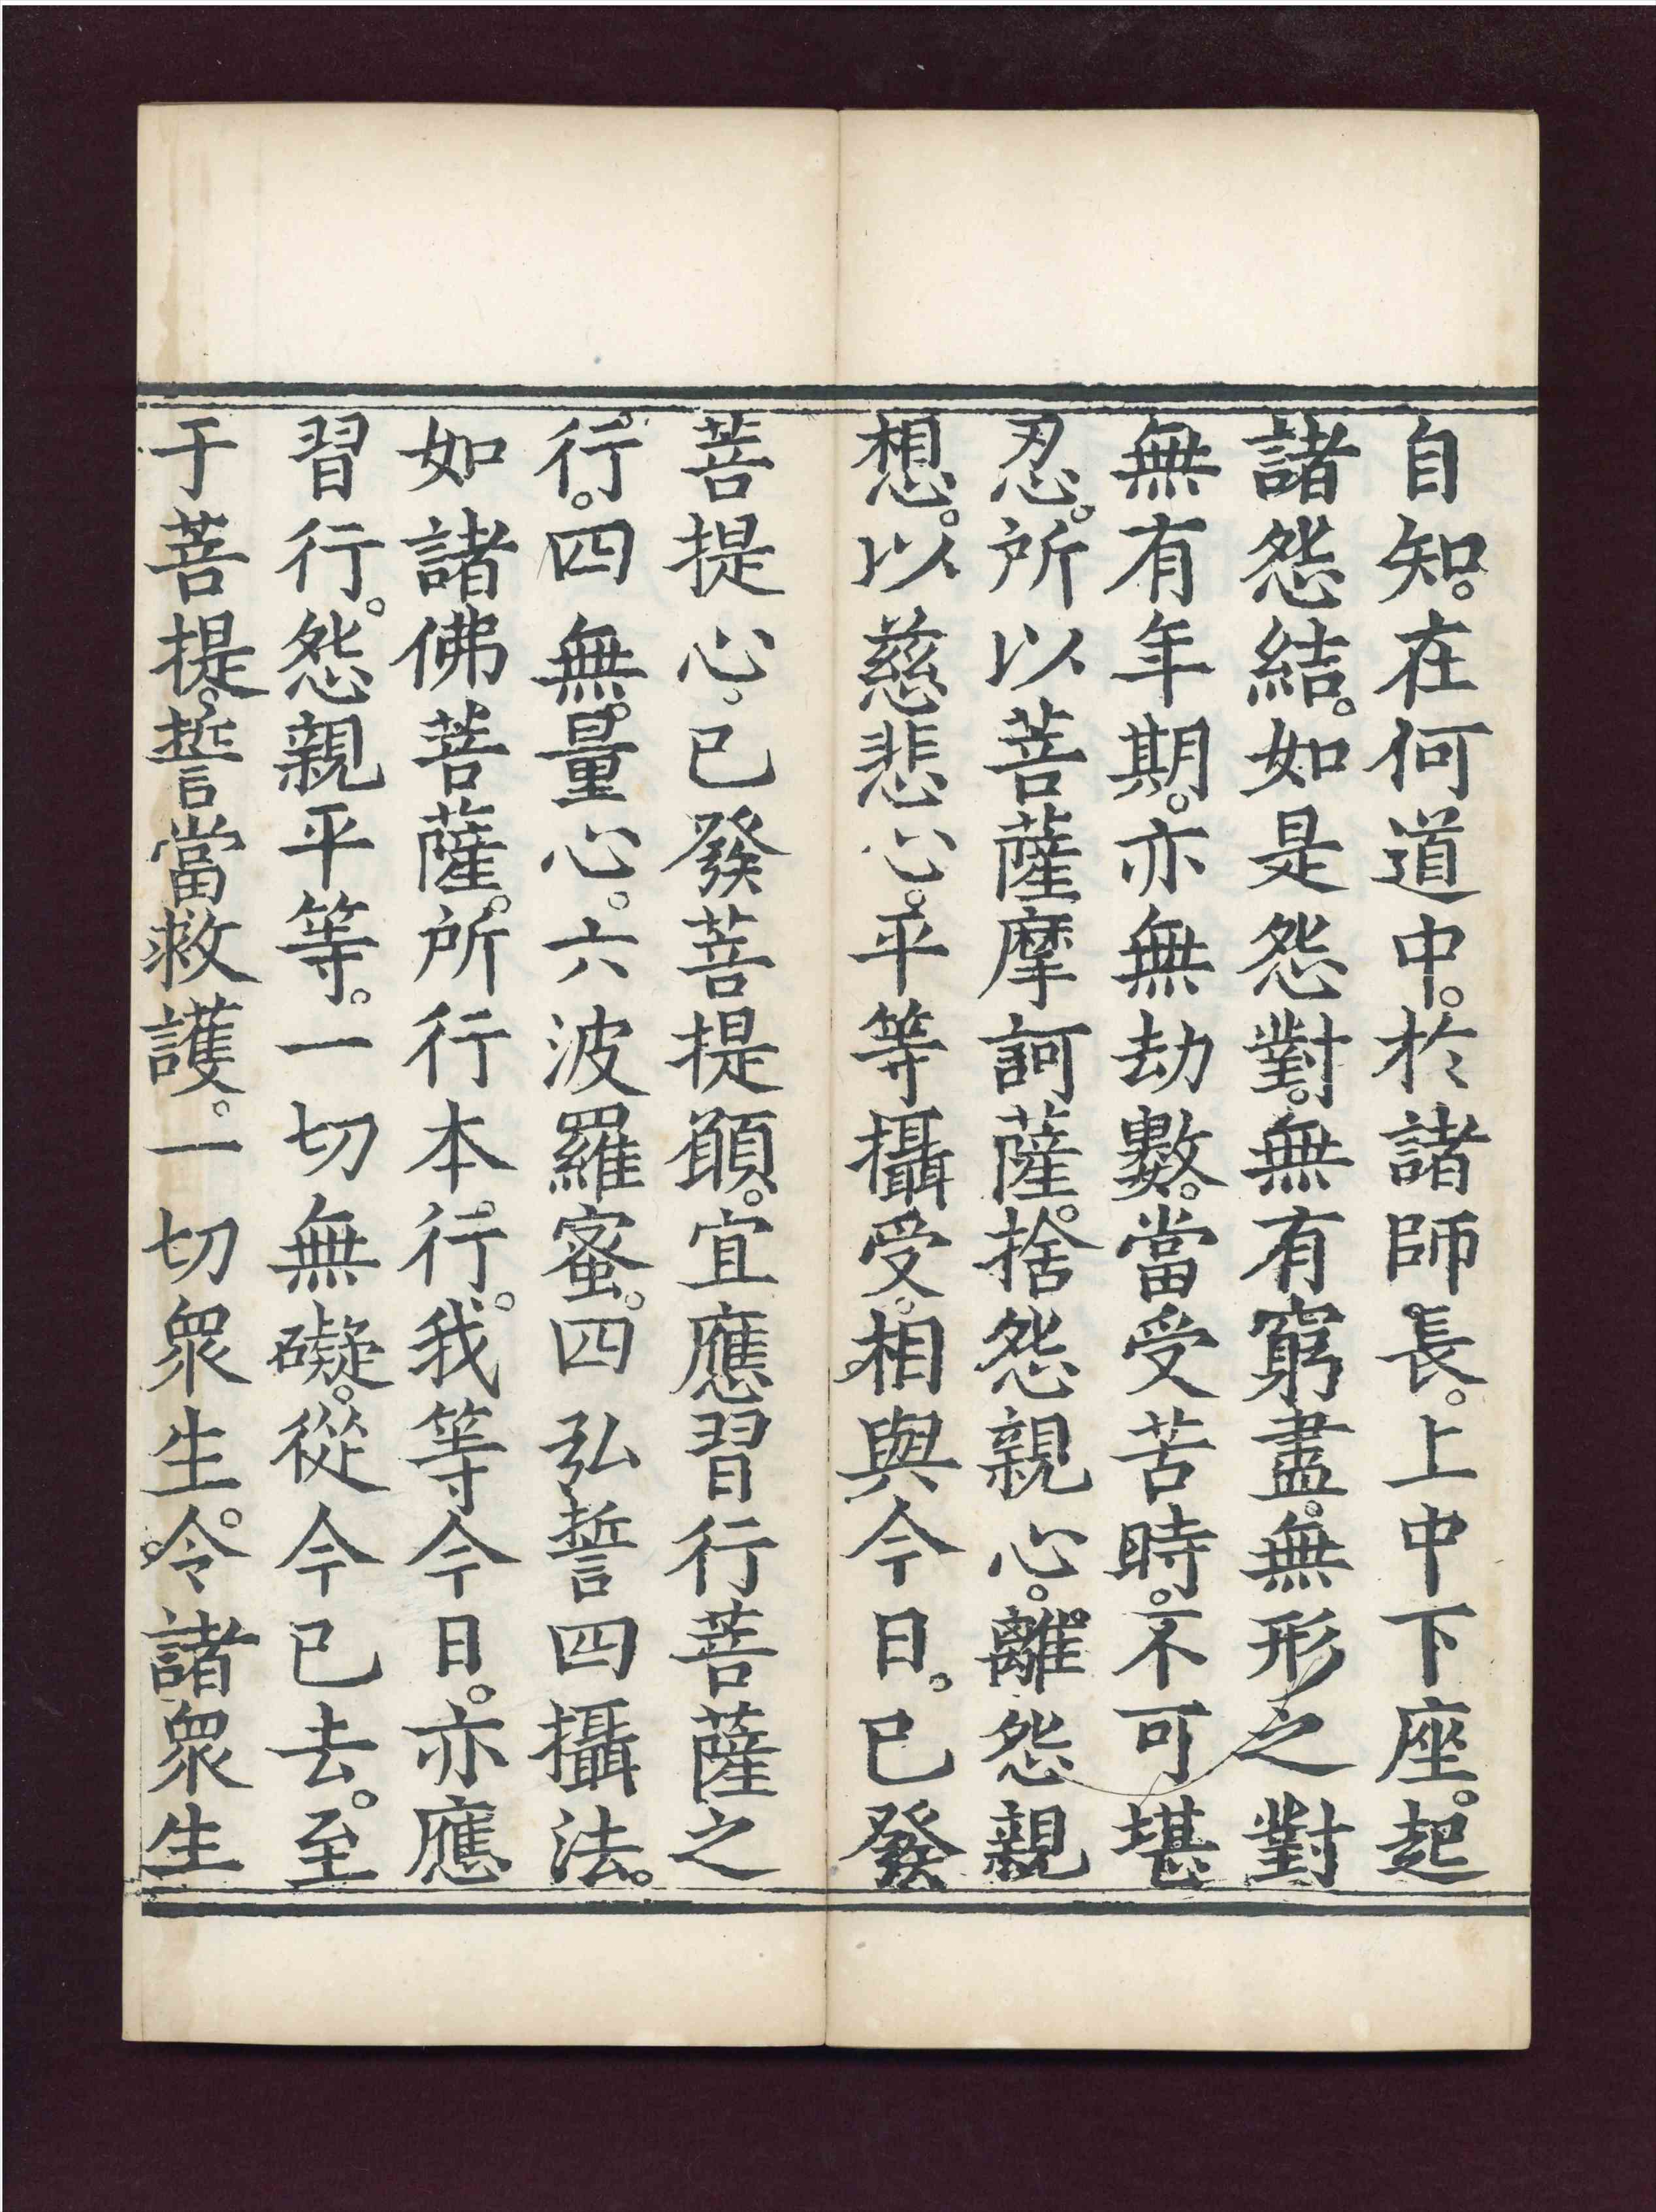 自知。在何道中。於諸師長。上中下座。起
諸怨結。如是怨對。無有窮盡。無形之對
無有年期。亦無劫數。當受苦時。不可堪
忍。所以菩薩摩訶薩。捨怨親心。離怨親
想。以慈悲心。平等攝受。相與今日。已發
菩提心。已發菩提願。宜應習行菩薩之
行。四無量心。六波羅蜜。四弘誓四攝法。
如諸佛菩薩。所行本行。我等今日。亦應
習行。怨親平等。一切無礙。從今已去。至
于菩提。誓當救護。一切眾生。令諸眾生